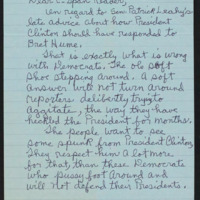 Dear C-Span Reader,
In regard to Sen Patrick Leahy's
late advice about how President
Clinton should have responded to
Bret Hume,
That is exactly what is wrong
with Democrats. The ole soft
shoe stepping around. A soft
answer will not turn around
reporters deliberatly trying to
agitate, the way they have
heckled the President for months.
The people want to see
some spunk from President Clinton.
They respect him a lot more
for that, than these Democrats
who pussy foot around and
will not defend their Presidents.